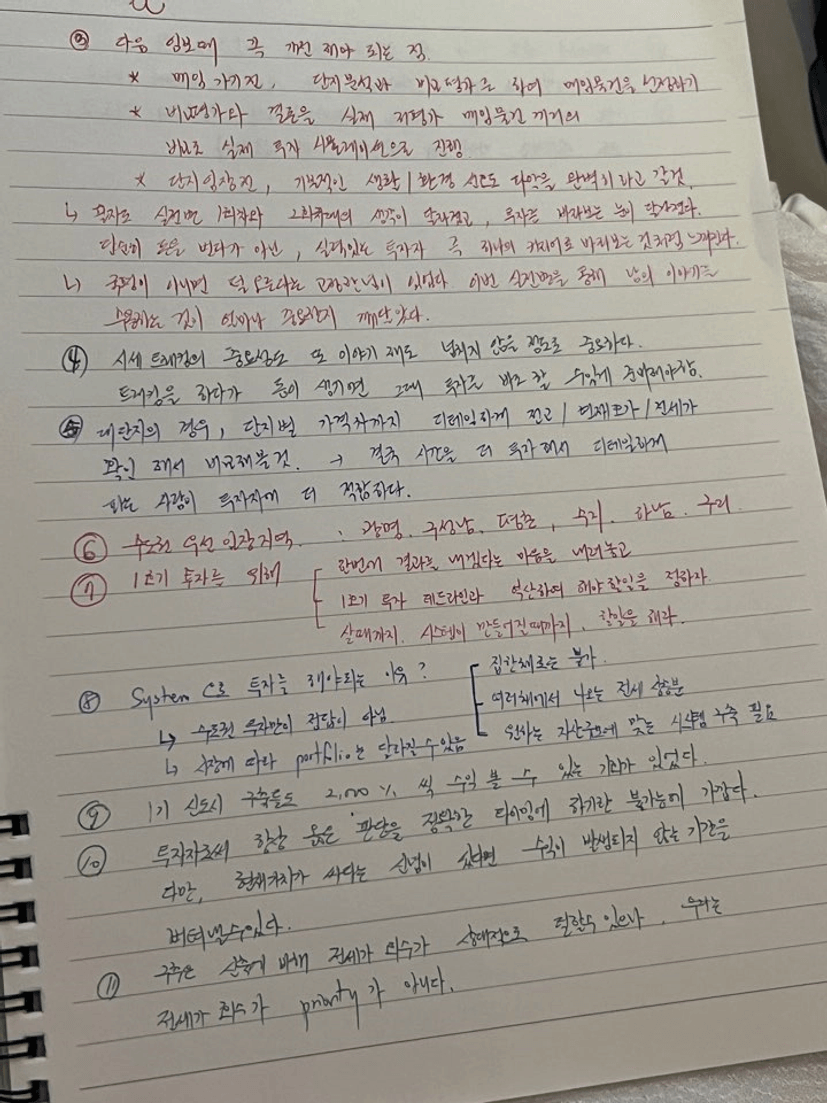 ③ 다음 임보때 꼭 개선 해야 되는 점.
* 매임 가기전, 단지분석과 비교평가를 하여 매임물건을 선정하기
* 비교평가와 결론을 실제 저평가 매임물건 끼리의
비교로 실제 투자 시뮬레이션으로 진행.
* 단지임장전, 기본적인 생활/환경 선호도 파악을 완벽히하고 갈것.
↳ 혼자로 실전반 1회차와 2회차때의 생각이 달라졌고, 투자를 바라보는 눈이 달라졌다.
단순히 돈을 번다가 아닌, 실력있는 투자자 즉 하나의 커리어로 바라보는 것처럼 느껴진다.
↳ 국평이 아니면 덜 오른다는 고정관념이 있었다. 이번 실전반을 통해 남의 이야기를
수용하는 것이 얼마나 중요한지 깨달았다.
④ 시세 트래킹의 중요성도 또 이야기 해도 넘치지 않을 정도로 중요하다.
트래킹을 하다가 돈이 생기면 그때 투자로 바로 할 수있게 준비해야함.
⑤ 대단지의 경우, 단지별 가격차까지 디테일하게 전고/현재호가/전세가
확인 해서 비교해볼것. → 결국 시간을 더 투자해서 디테일하게
파는 사람이 투자자에 더 적합하다.
⑥ 수도권 우선 임장지역 : 광명, 구성남, 평촌, 수지, 하남, 구리
⑦ 1호기 투자를 위해 한번에 결과를 내겠다는 마음을 내려놓고
1호기 투자 데드라인과 역산하여 해야할일을 정하자
살때까지, 시스템이 만들어질때까지, 할일을 해라.
⑧ System으로 투자를 해야되는 이유? 집한채로는 불가.
↳ 수도권 투자만이 정답이 아님. 여러채에서 나오는 전세 상승분
↳ 시장에 따라 portfolio는 달라질수있음 원하는 자산규모에 맞는 시스템 구축 필요
⑨ 1기 신도시 구축들도 2,000% 씩 수익 볼 수 있는 기회가 있었다.
⑩ 투자자로써 항상 옳은 판단을 정확한 타이밍에 하기란 불가능에 가깝다.
다만, 현재가치가 싸다는 신념이 있다면 수익이 발생되지 않는 기간을
버텨낼수있다.
⑪ 구축은 신축에 비해 전세가 회수가 상대적으로 덜할수 있으나, 우리는
전세가 회수가 priority가 아니다.